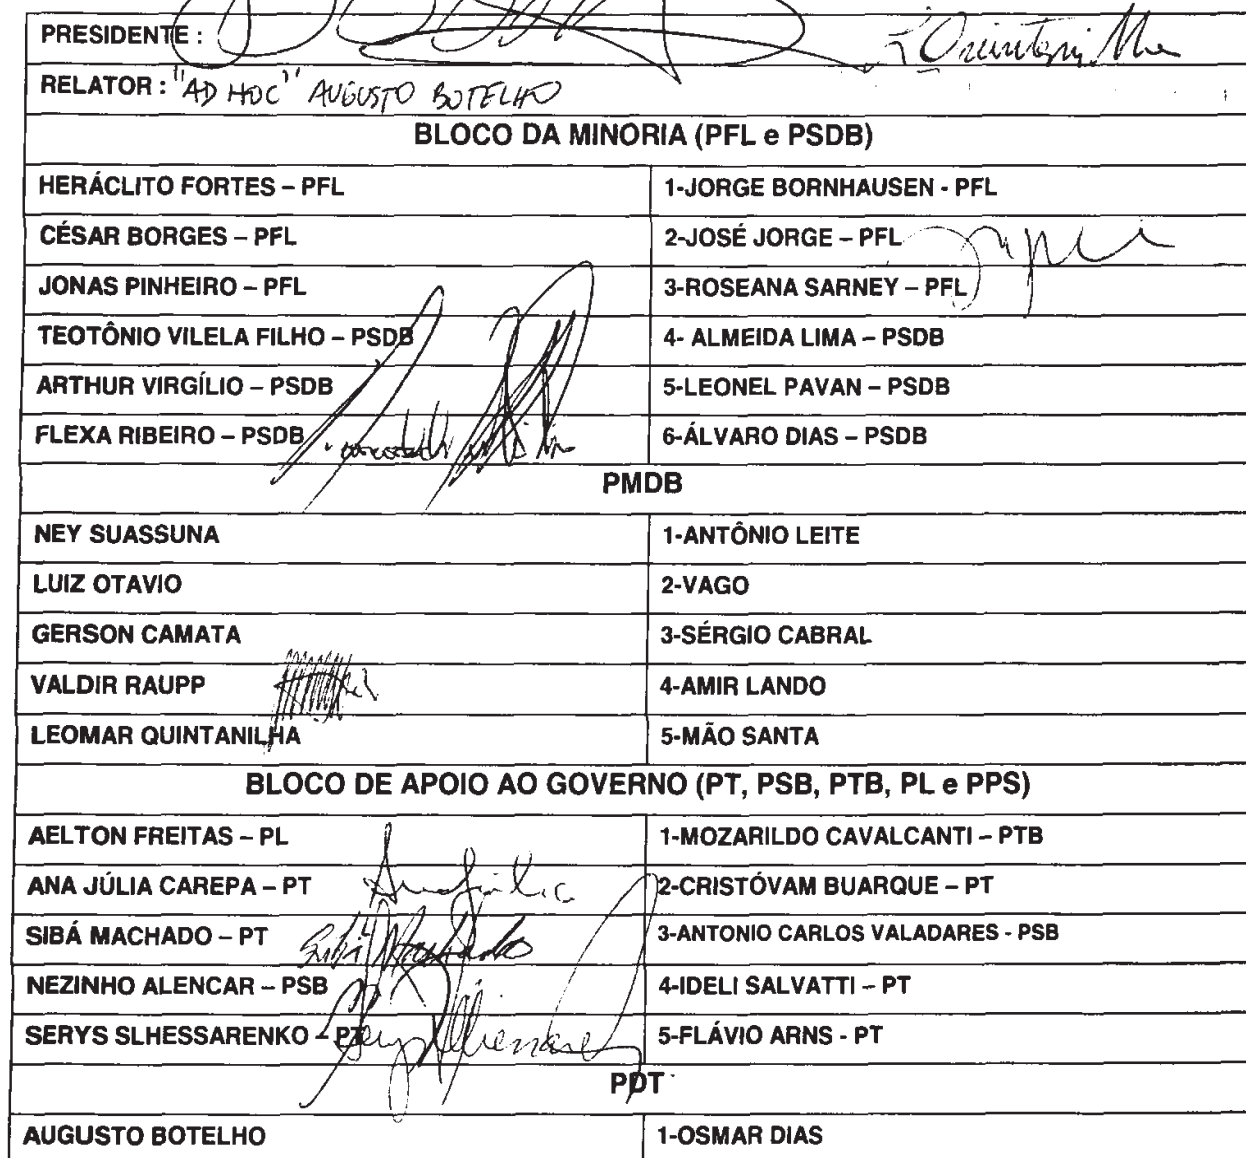 PRESIDENTE : L Quintanilha
RELATOR : "AD HOC" AUGUSTO BOTELHO
BLOCO DA MINORIA (PFL e PSDB)
HERÁCLITO FORTES – PFL 1-JORGE BORNHAUSEN - PFL
CÉSAR BORGES – PFL 2-JOSÉ JORGE – PFL
JONAS PINHEIRO – PFL 3-ROSEANA SARNEY – PFL
TEOTÔNIO VILELA FILHO – PSDB 4- ALMEIDA LIMA – PSDB
ARTHUR VIRGÍLIO – PSDB 5-LEONEL PAVAN – PSDB
FLEXA RIBEIRO – PSDB 6-ÁLVARO DIAS – PSDB
PMDB
NEY SUASSUNA 1-ANTÔNIO LEITE
LUIZ OTAVIO 2-VAGO
GERSON CAMATA 3-SÉRGIO CABRAL
VALDIR RAUPP 4-AMIR LANDO
LEOMAR QUINTANILHA 5-MÃO SANTA
BLOCO DE APOIO AO GOVERNO (PT, PSB, PTB, PL e PPS)
AELTON FREITAS – PL 1-MOZARILDO CAVALCANTI – PTB
ANA JÚLIA CAREPA – PT Ana Júlia 2-CRISTÓVAM BUARQUE – PT
SIBÁ MACHADO – PT Sibá Machado 3-ANTONIO CARLOS VALADARES - PSB
NEZINHO ALENCAR – PSB 4-IDELI SALVATTI – PT
SERYS SLHESSARENKO – PT 5-FLÁVIO ARNS - PT
PDT
AUGUSTO BOTELHO 1-OSMAR DIAS